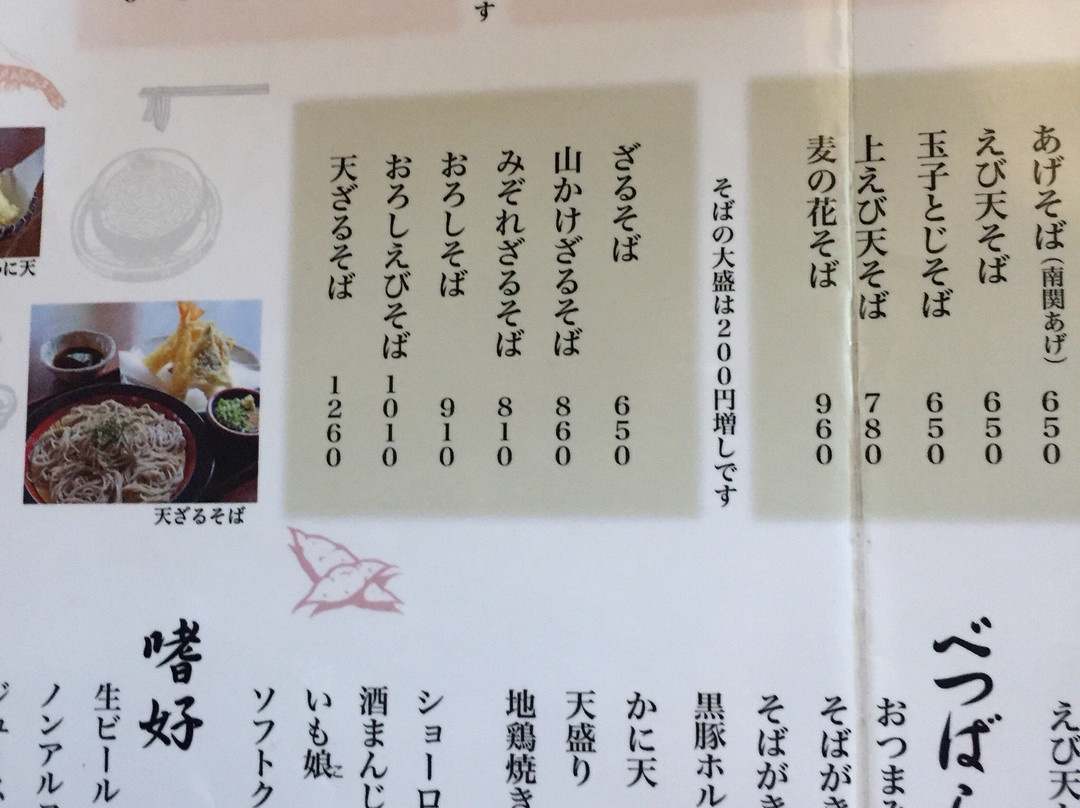 す
あげそば（南関あげ） 650
えび天そば 650
玉子とじそば 650
上えび天そば 780
麦の花そば 960
そばの大盛は200円増しです
ざるそば 650
山かけざるそば 860
みぞれざるそば 810
おろしそば 910
おろしえびそば 1010
天ざるそば 1260
に天
天ざるそば
えび天
べつば
おつまみ
そばがき
そばがき
黒豚ホル
かに天
天盛り
地鶏焼き
ショーロ
酒まんじ
いも娘
ソフトク
嗜好
生ビール
ノンアルコ
ジュース